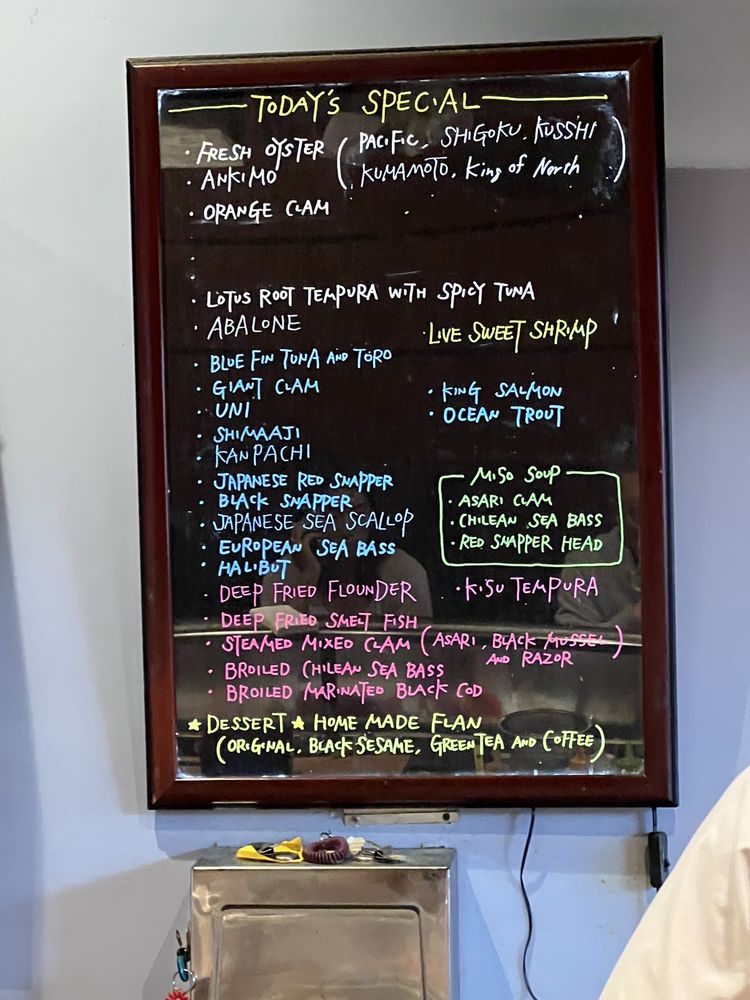 TODAY'S SPECIAL
· FRESH OYSTER (PACIFIC, SHIGOKU, KUSSHI
KUMAMOTO, King of North)
· ANKIMO
· ORANGE CLAM
· LOTUS ROOT TEMPURA WITH SPICY TUNA
· ABALONE
· LIVE SWEET SHRIMP
· BLUE FIN TUNA AND TORO
· GIANT CLAM
· UNI
· KING SALMON
· OCEAN TROUT
· SHIMAAJI
· KANPACHI
· JAPANESE RED SNAPPER
· BLACK SNAPPER
· JAPANESE SEA SCALLOP
· EUROPEAN SEA BASS
· HALIBUT
MISO SOUP
· ASARI CLAM
· CHILEAN SEA BASS
· RED SNAPPER HEAD
· DEEP FRIED FLOUNDER
· KISU TEMPURA
· DEEP FRIED SMELT FISH
· STEAMED MIXED CLAM (ASARI, BLACK MUSSEL
AND RAZOR)
· BROILED CHILEAN SEA BASS
· BROILED MARINATED BLACK COD
★ DESSERT ★ HOME MADE FLAN
(ORIGINAL, BLACK SESAME, GREEN TEA AND COFFEE)